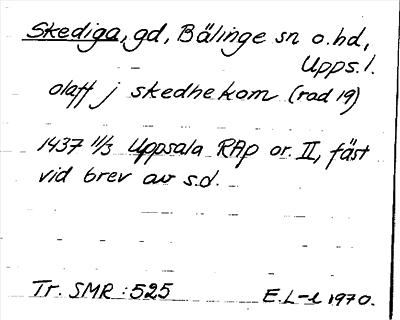 Skediga, gd, Bälinge sn o. hd,
Upps. l.
olaff j skedhekom (rad 19)
1437 11/3 Uppsala RAp or. II, fäst
vid brev av s.d.
Tr. SMR : 525 E.L-l 1970.